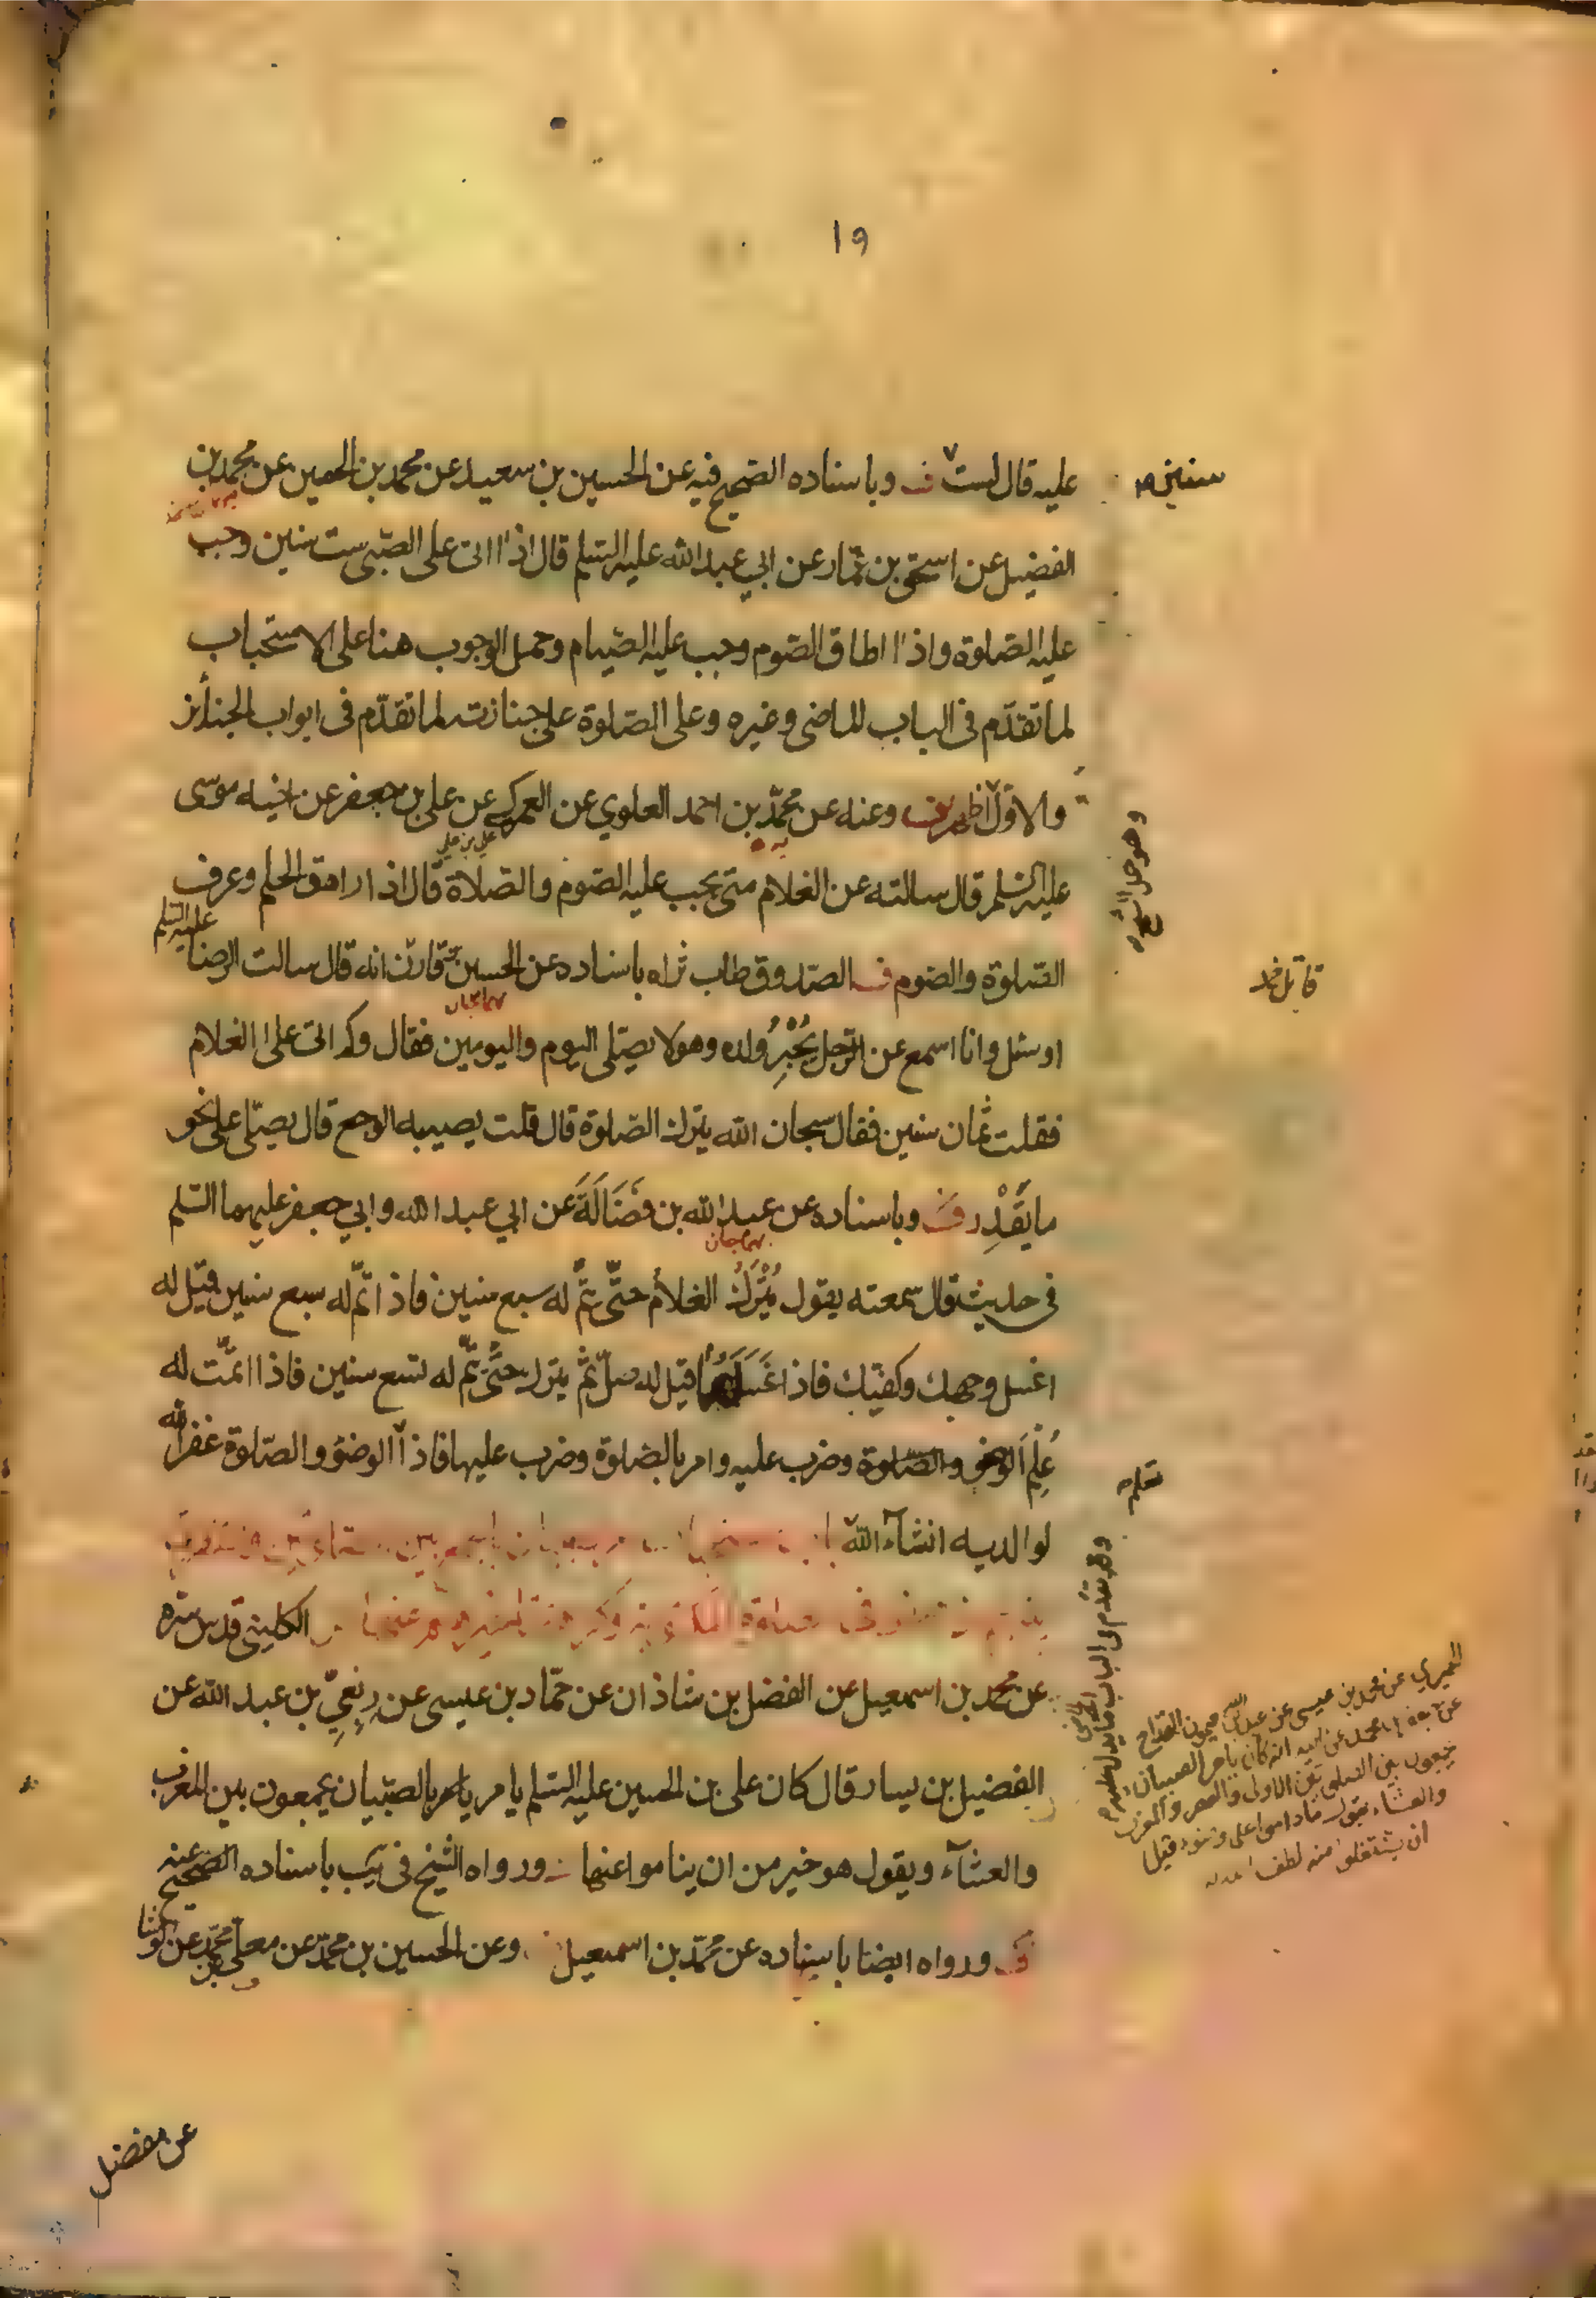 ١٩
عليه قال لست ف وباسناده الصحيح فيه عن الحسين بن سعيد عن محمد بن الحصين عن محمد بن
سنين
الفضيل عن اسحق بن عمار عن ابي عبدالله عليه السلم قال اذا اتى على الصبي ست سنين وجب
عليه الصلوة واذا اطاق الصوم وجب عليه الصيام وحمل الوجوب هنا على الاستحباب
لما تقدم فى الباب الماضى وغيره وعلى الصلوة على جنازته لما تقدم فى ابواب الجنائز
والاول اظهر وعنه عن محمد بن احمد العلوي عن العمركى عن على بن جعفر عن اخيه موسى
علي بن علي
عليه السلم قال سالته عن الغلام متى يجب عليه الصوم والصلاة قال اذا راهق الحلم وعرف
الصلوة والصوم ف الصدوق طاب ثراه باسناده عن الحسين بن قارن انه قال سالت الرضا عليه السلم
او سئل وانا اسمع عن الرجل يُجْبِرُ ولده وهو لا يصلى اليوم واليومين فقال وكم اتى على الغلام
فقلت ثمان سنين فقال سبحان الله يترك الصلوة قال قلت يصيبه الوجع قال يصلى على نحو
ما يَقْدِر ف وباسناده عن عبدالله بن فَضَالَةَ عن ابي عبدالله وابي جعفر عليهما السلم
فى حديث قال سمعته يقول يُتْرَكُ الغلام حتّى يتمّ له سبع سنين فاذا تمّ له سبع سنين قيل له
اغسل وجهك وكفيك فاذا غَسَلَهُمَا قيل له صلّ ثم يترك حتّى يتمّ له تسع سنين فاذا تمّت له
عُلِّمَ الوضوء والصلوة وضرب عليه وامر بالصلوة وضرب عليها فاذا الوضوء والصلوة غفر الله
تعلم
لوالديه انشاء الله
الكلينى قدس سره
عن محمد بن اسمعيل عن الفضل بن شاذان عن حمّاد بن عيسى عن رِبْعِيّ بن عبدالله عن
الفضيل بن يسار قال كان على بن الحسين عليه السلم يامر يامر بالصبيان يجمعون بين المغرب
والعشاء ويقول هو خير من ان يناموا عنها ورواه الشيخ فى يب باسناده الصحيح عنه
ورواه ايضا باسناده عن محمّد بن اسمعيل وعن الحسين بن محمّد عن معلى بن محمّد عن الوشا
الحميري عن محمد بن عيسى عن عبدالله بن ميمون القداح
عن جعفر بن محمد عن ابيه انه كان يامر الصبيان
يجمعون بين الصلوتين الاولى والعصر والمغرب
والعشاء يقول ماداموا على وضوء قبل
ان يشتغلوا منه
عن مفضل